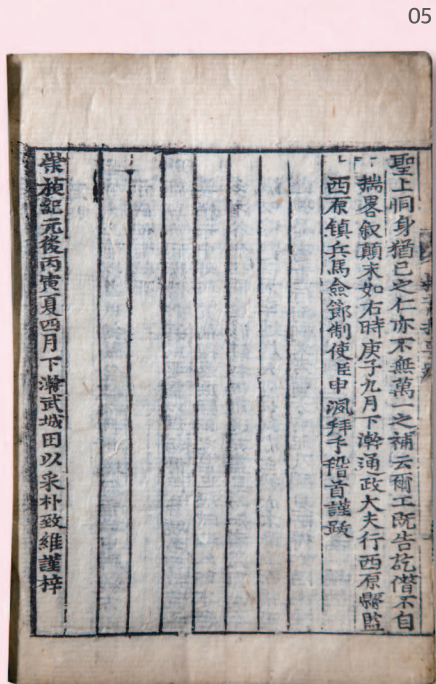 05
聖上恫身猶已之仁亦不無萬一之補云爾工旣告訖僣不自
揣畧叙顚末如右時庚子九月下澣通政大夫行西原縣監
西原鎭兵馬僉節制使臣申㴋拜手稽首謹跋
崇禎紀元後丙寅夏四月下澣武城田以采朴致維謹梓